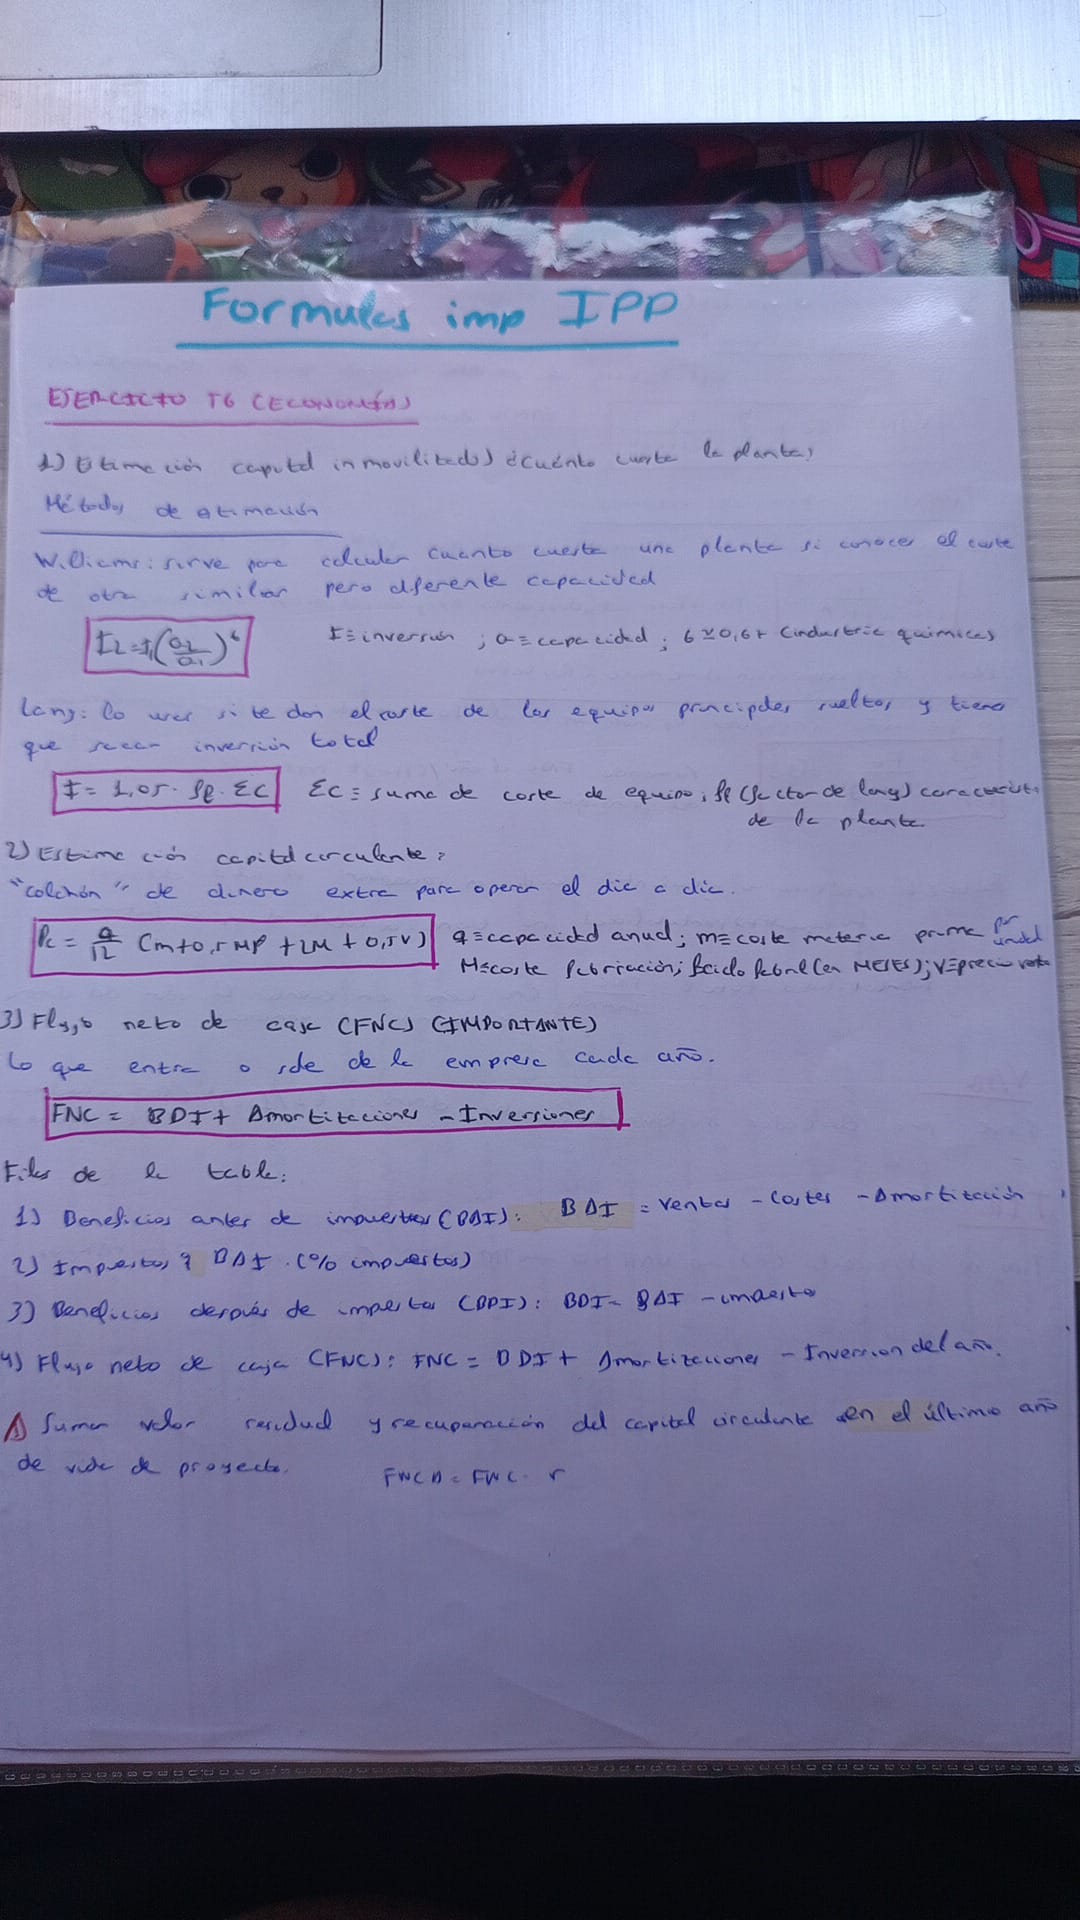 Formulas imp IPP
EJERCICIO T6 (ECONOMÍA)
1) Estimación capital inmovilizado) ¿cuánto cuesta la planta?
Métodos de estimación
Williams: sirve para calcular cuanto cuesta una planta si conoces el coste
de otra similiar pero diferente capacidad
I2 = I1 (a2/a1)^6 I≡inversión ; a≡capacidad ; 6≃0,6+ (industria química)
Lang: lo usas si te dan el coste de los equipos principales sueltos y tienes
que sacar inversión total
I = 1,05 · fl · ΣC ΣC ≡ suma de coste de equipo; fl (factor de lang) característi.
de la planta
2) Estimación capital circulante:
"colchón" de dinero extra para operar el día a día.
Pc = a/12 (m+0,5 Mf + 2M + 0,5V) a≡capacidad anual; m≡coste materia prima por unidad
M≡coste fabricación; f≡ciclo fabril (en MESES); V≡precio venta
3) Flujo neto de caja (FNC) (IMPORTANTE)
Lo que entra o sale de la empresa cada año.
FNC = BDI + Amortizaciones - Inversiones
Filas de la tabla:
1) Beneficios antes de impuestos (BAI): BAI = ventas - Costes - Amortización
2) Impuestos: BAI · (% impuestos)
3) Beneficios después de impuestos (BDI): BDI = BAI - impuesto
4) Flujo neto de caja (FNC): FNC = BDI + Amortizaciones - Inversion del año.
⚠ Sumar valor residual y recuperación del capital circulante en el último año
de vida de proyecto. FNCA = FNC · r